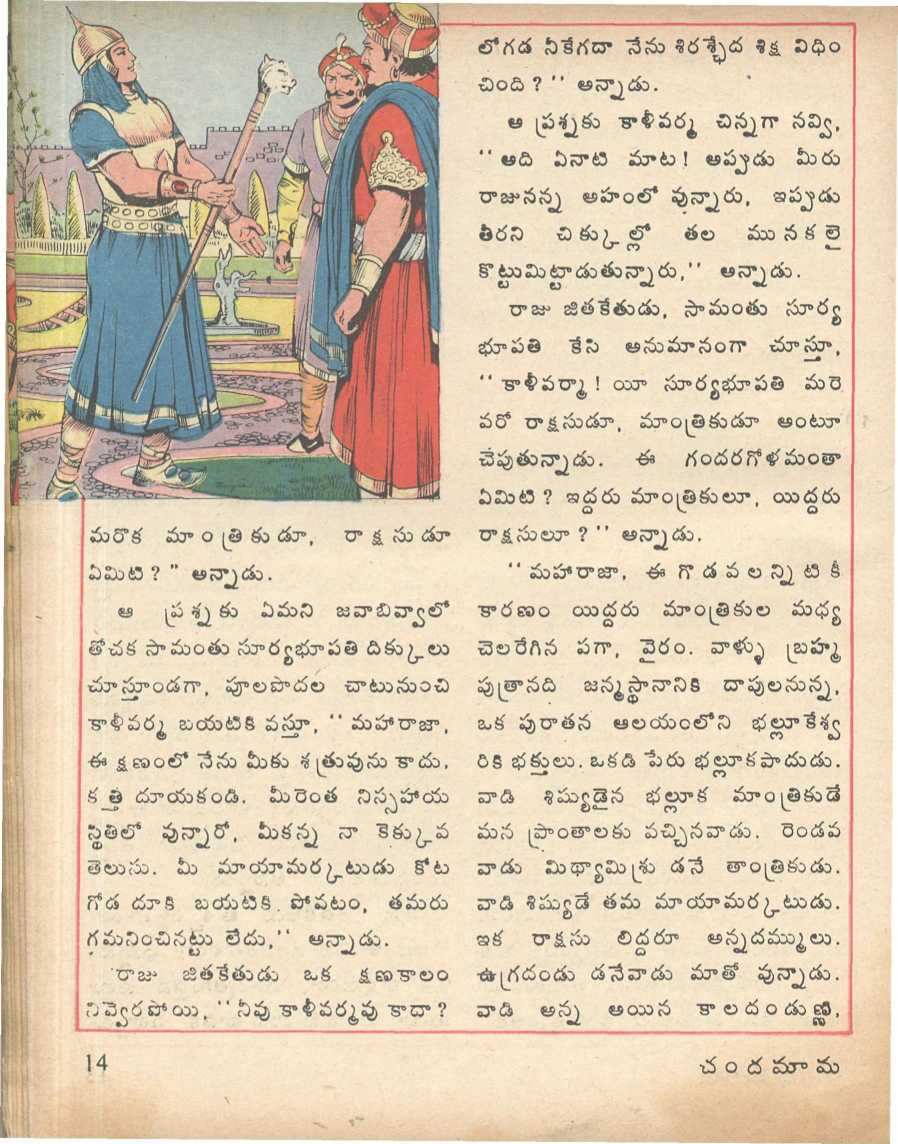 మరొక మాంత్రికుడూ, రాక్షసుడూ
ఏమిటి?" అన్నాడు.
ఆ ప్రశ్నకు ఏమని జవాబివ్వాలో
తోచక సామంతు సూర్యభూపతి దిక్కులు
చూస్తూండగా, పూలపొదల చాటునుంచి
కాళీవర్మ బయటికి వస్తూ, ‘‘మహారాజా,
ఈ క్షణంలో నేను మీకు శత్రువును కాదు,
కత్తి దూయకండి. మీరెంత నిస్సహాయ
స్థితిలో వున్నారో, మీకన్న నా కెక్కువ
తెలుసు. మీ మాయామర్కటుడు కోట
గోడ దూకి బయటికి పోవటం, తమరు
గమనించినట్టు లేదు,'' అన్నాడు.
రాజు జితకేతుడు ఒక క్షణకాలం
నివ్వెరపోయి, ‘‘నీవు కాళీవర్మవు కాదా?
లోగడ నీకేగదా నేను శిరశ్ఛేద శిక్ష విధిం
చింది?'' అన్నాడు.
ఆ ప్రశ్నకు కాళీవర్మ చిన్నగా నవ్వి,
‘‘అది ఏనాటి మాట! అప్పుడు మీరు
రాజునన్న అహంలో వున్నారు, ఇప్పుడు
తీరని చిక్కుల్లో తల మునకలై
కొట్టుమిట్టాడుతున్నారు,'' అన్నాడు.
రాజు జితకేతుడు, సామంతు సూర్య
భూపతి కేసి అనుమానంగా చూస్తూ,
‘‘కాళీవర్మా! యీ సూర్యభూపతి మరె
వరో రాక్షసుడూ, మాంత్రికుడూ అంటూ
చెపుతున్నాడు. ఈ గందరగోళమంతా
ఏమిటి? ఇద్దరు మాంత్రికులూ, యిద్దరు
రాక్షసులూ?'' అన్నాడు.
‘‘మహారాజా, ఈ గొడవలన్నిటికీ
కారణం యిద్దరు మాంత్రికుల మధ్య
చెలరేగిన పగా, వైరం. వాళ్ళు బ్రహ్మ
పుత్రానది జన్మస్థానానికి దాపులనున్న,
ఒక పురాతన ఆలయంలోని భల్లూకేశ్వ
రికి భక్తులు. ఒకడి పేరు భల్లూకపాదుడు.
వాడి శిష్యుడైన భల్లూక మాంత్రికుడే
మన ప్రాంతాలకు వచ్చినవాడు. రెండవ
వాడు మిథ్యామిశ్రు డనే తాంత్రికుడు.
వాడి శిష్యుడే తమ మాయామర్కటుడు.
ఇక రాక్షసు లిద్దరూ అన్నదమ్ములు.
ఉగ్రదండు డనేవాడు మాతో వున్నాడు.
వాడి అన్న అయిన కాలదండుణ్ణి,
14
చందమామ